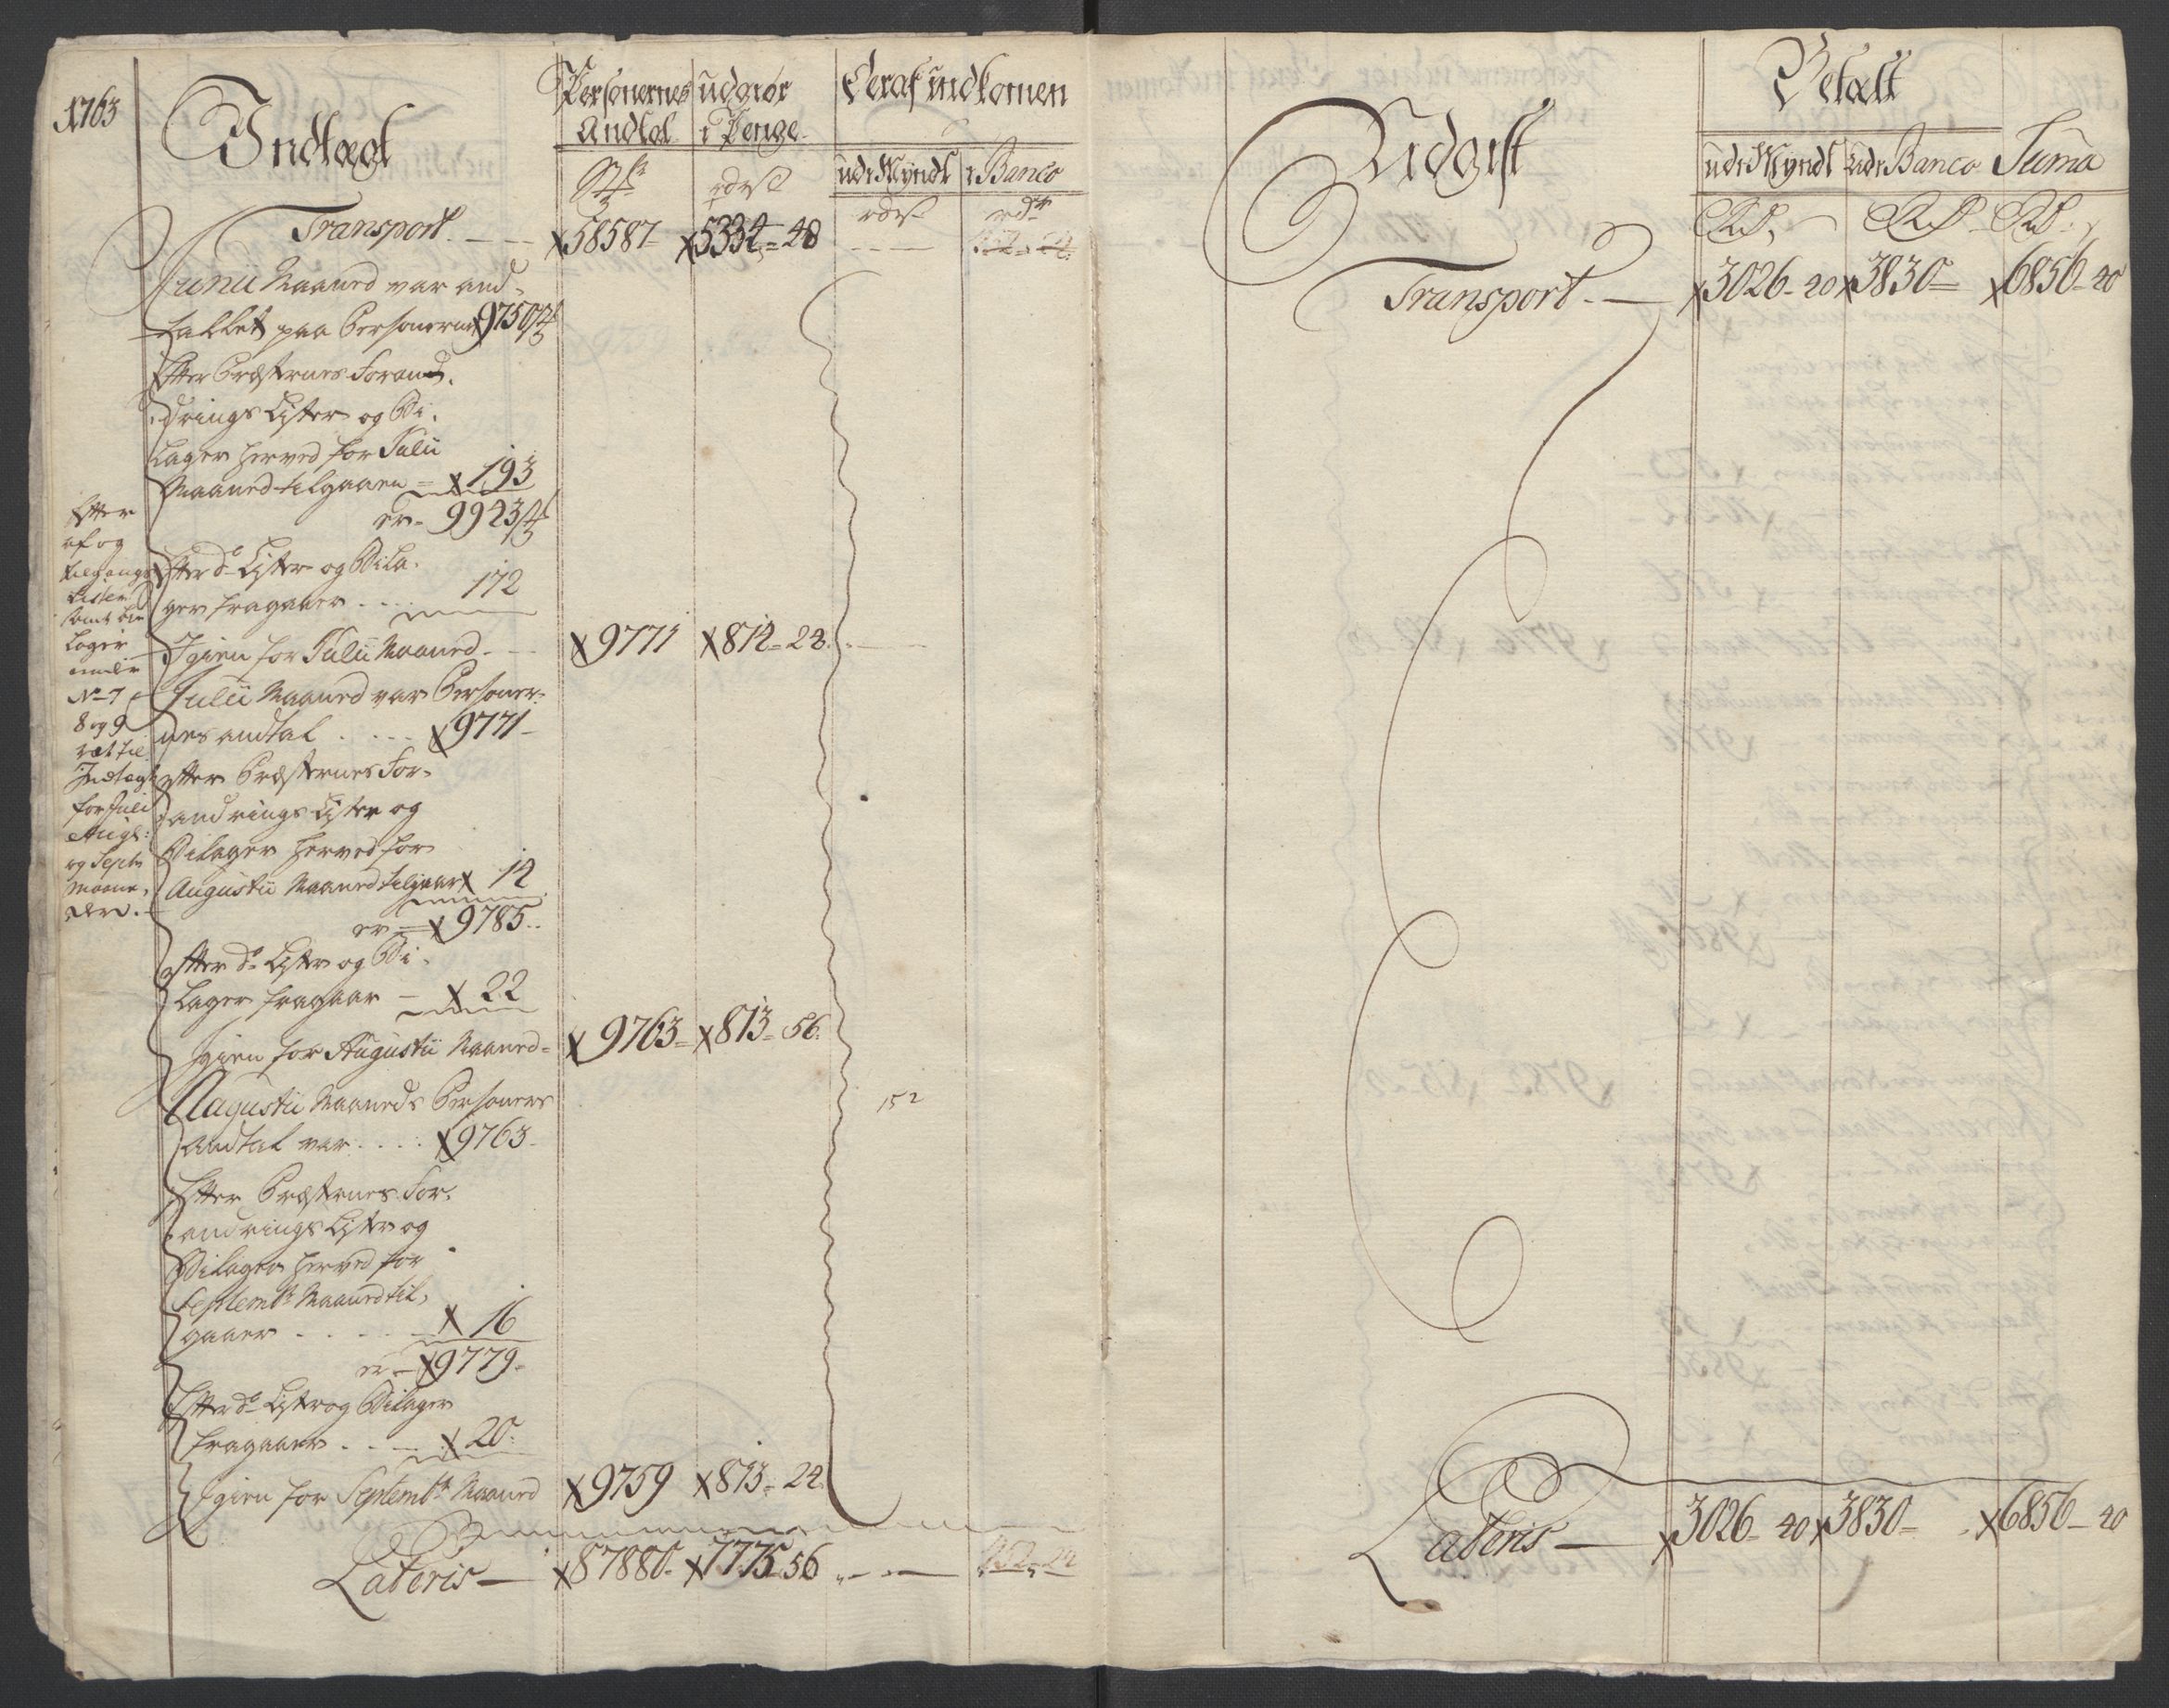 1763
Indtægt
Personernes Andtal
udgiør i Penge
Deraf indkomen
udi Myndt
i Banco
Stk
rdr
rdr
rdr
Transport. x58587- x5334=48
Junii Maaned var and-
tallet paa Personerne x9750 st
Efter Præsternes Forand-
drings Lister og Bi-
lager herved for Julii
Maaned tilgaaen = x193
er- 9943 st
Efter do Lister og Bila-
ger fragaaer .... 172
Igien for Julii Maaned. x9771 x814=24.
Julii Maaned var Personer-
nes andtal .... x9771-
efter Præsternes For-
andrings Lister og
Bilager herved for
Augustii Maaned tilgaar x 14
er = x9785..
efter do Lister og Bi-
lager fragaar - x22
Igien for Augustii Maaned= x9763= x813=56.
Augustii Maaneds Personers
andtal var .... x9763-
Efter Præsternes For-
andrings Lister og
Bilager herved for
Septembr Maaned til-
gaaer ..... x 16
er- x9779-
Efter do Lister og Bilager
fragaaer .... x20-
Igien for Septembr Maaned x9759 x813=24.
Lateris — x87880- x7775 56
152
Efter
af og
tilgangs
Lister
samt bi
lager
under
No 7
8 og 9
ræt til
Indtægt
for Juli
Augs:
og Septr
Maane-
der.
Udgift
Betalt
udi Myndt
udi Banco
Suma
Rd.
Rd.
Rd.
Transport. — x3026-40 x3830= x6856-40
Lateris — x3026-40 x3830= x6856-40